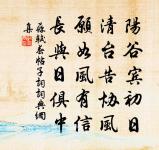 陽谷賓初日
清台告協風
願如風有信
長與日俱中
蘇軾春帖子詞詞典網
集